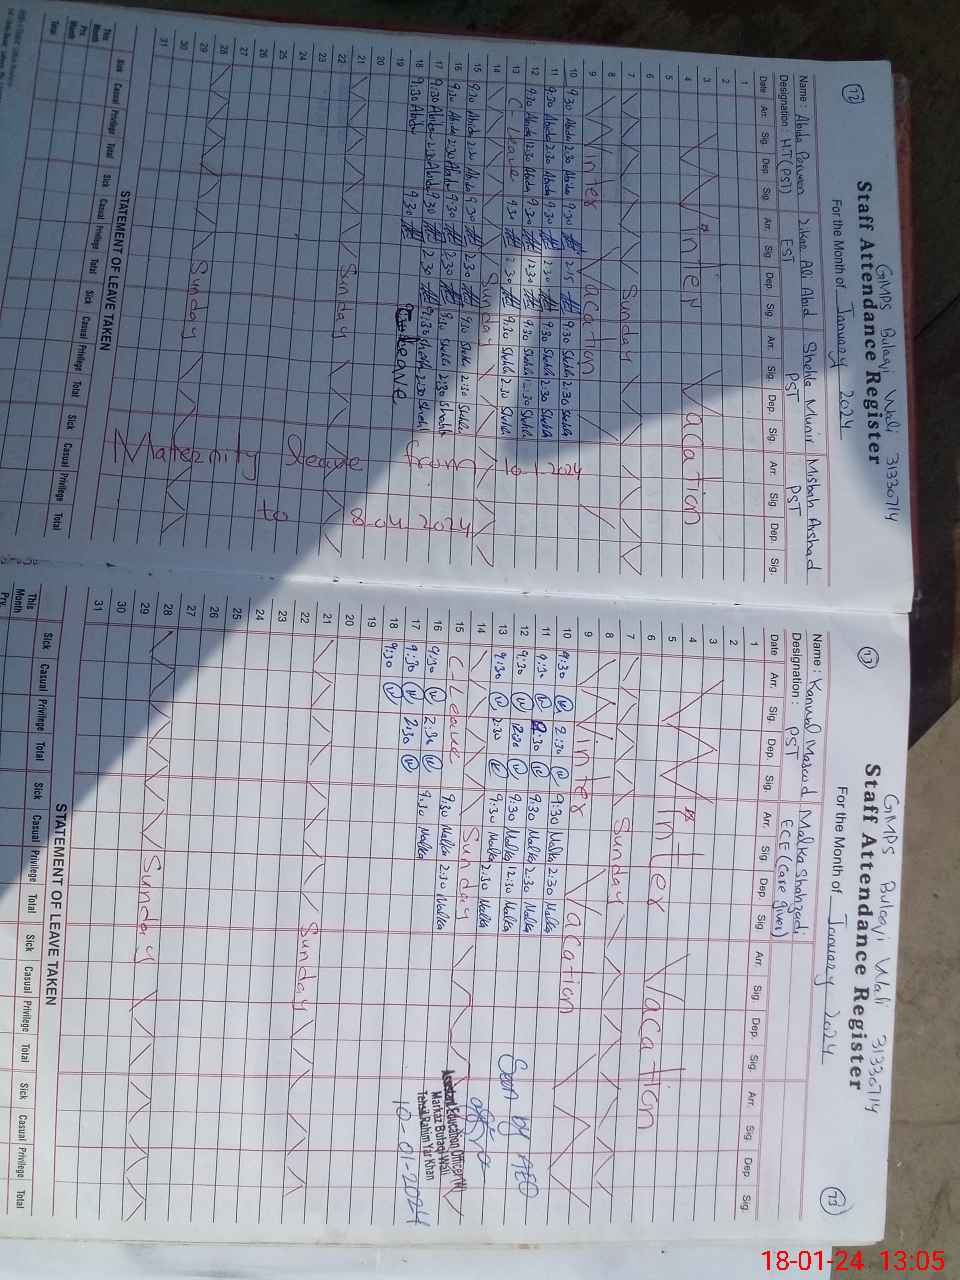 12
GMPS Bulaqi Wali 31330714
Staff Attendance Register
For the Month of January 2024
Name: Abida Parveen Zikar Ali Abid Shehla Munir Misbah Arshad
Designation: HT(PST) EST PST PST
Date Arr. Sig. Dep. Sig. Arr. Sig. Dep. Sig. Arr. Sig. Dep. Sig. Arr. Sig. Dep. Sig.
1
2
3
4 Winter Vacation
5
6
7 Sunday
8
9 Winter Vacation
10 9:30 Abida 2:30 Abida 9:30 2:15 9:30 Shehla 2:30 Shehla
11 9:30 Abida 2:30 Abida 9:30 2:30 9:30 Shehla 2:30 Shehla
12 9:30 Abida 12:30 Abida 9:30 12:30 9:30 Shehla 12:30 Shehla
13 C-Leave 9:30 2:30 9:30 Shehla 2:30 Shehla
14 Sunday
15 9:30 Abida 2:30 Abida 9:30 2:30 9:30 Shehla 2:30 Shehla
16 9:30 Abida 2:30 Abida 9:30 2:30 9:30 Shehla 2:30 Shehla
17 9:30 Abida 2:30 Abida 9:30 2:30 9:30 Shehla 2:30 Shehla
18 9:30 Abida 9:30 Leave
19
20
21 Sunday
22
23
24
25
26
27
28 Sunday
29
30
31
Maternity leave from 10-1-2024
to 8-04-2024
STATEMENT OF LEAVE TAKEN
Sick Casual Privilege Total Sick Casual Privilege Total Sick Casual Privilege Total Sick Casual Privilege Total
This Month
Prv. Month
Total
13
GMPS Bulaqi Wali 31330714
73
Staff Attendance Register
For the Month of January 2024
Name: Kanwal Masood Malka Shahzadi
Designation: PST ECE (Care giver)
Date Arr. Sig. Dep. Sig. Arr. Sig. Dep. Sig. Arr. Sig. Dep. Sig. Arr. Sig. Dep. Sig.
1
2
3
4
5 Winter Vacation
6
7 Sunday
8
9 Winter Vacation
10 9:30 2:30 9:30 Malka 2:30 Malka
11 9:30 2:30 9:30 Malka 2:30 Malka
12 9:30 12:30 9:30 Malka 12:30 Malka
13 9:30 2:30 9:30 Malka 2:30 Malka
14 Sunday
15 C-Leave 9:30 Malka 2:30 Malka
16 9:30 2:30 9:30 Malka
17 9:30 2:30
18 9:30
19
20
21 Sunday
22
23
24
25
26
27
28 Sunday
29
30
31
Seen by AEO
Assistant Education Officer(W)
Markaz Bulaqi Wali
Tehsil Rahim Yar Khan
10-01-2024
STATEMENT OF LEAVE TAKEN
Sick Casual Privilege Total Sick Casual Privilege Total Sick Casual Privilege Total Sick Casual Privilege Total
This Month
Prv.
18-01-24 13:05